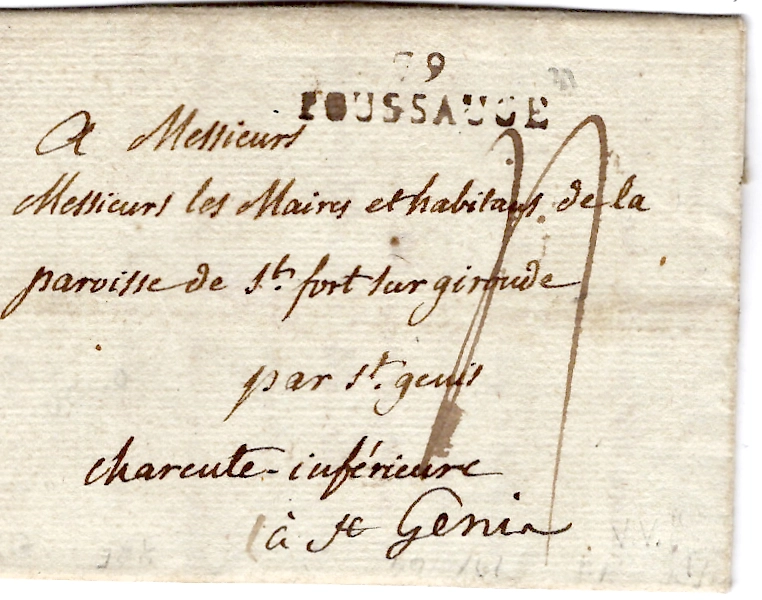 79
POUSSAUGE
A Messieurs
Messieurs les Maires et habitans de la
paroisse de St. fort sur gironde
par st. genis
charente-inférieure
à St Genis